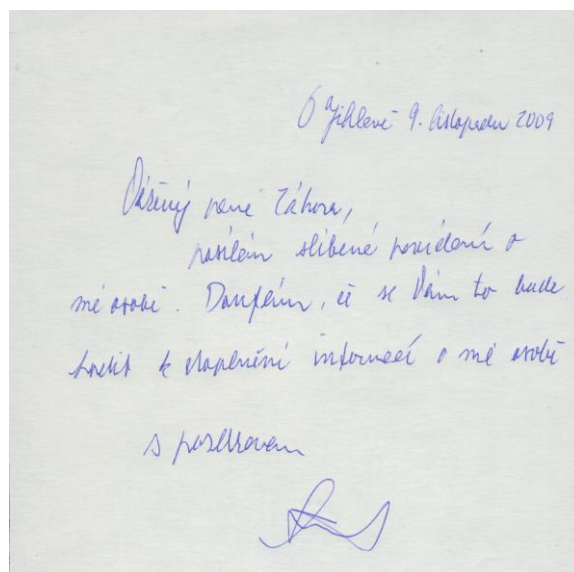 V Jihlavě 9. listopadu 2009
Vážený pane Záhora,
posílám slíbené povídání o
mé osobě. Doufám, že se Vám to bude
hodit k doplnění informací o mé osobě
s pozdravem